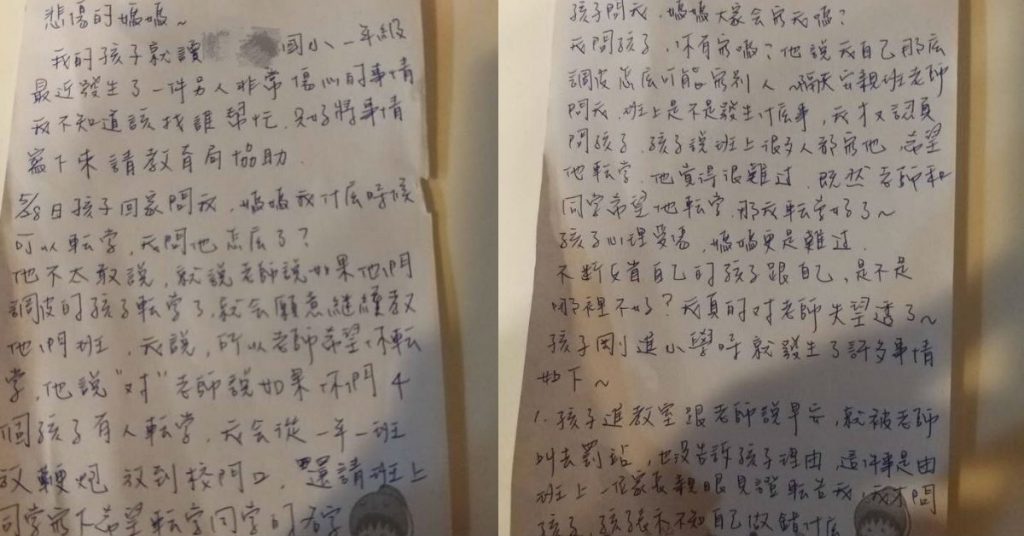 悲傷的媽媽~
我的孩子就讀 國小一年級
最近發生了一件另人非常傷心的事情
我不知道該找誰幫忙.只好將事情
寫下來請教育局協助.
5/28日孩子回家問我.媽媽我什麼時候
可以転学,我問他怎麼了?
他不太敢說,就說老師說如果他們
調皮的孩子転学了.就会願意継續教
他們班,我說,所以老師希望你転
学,他說"对"老師說如果你們4
個孩子有人転学.我会從一年一班
放鞭炮放到校門口,還請班上
同学寫下希望転学同学的名字
孩子問我.媽媽大家会寫我嗎?
我問孩子,你有寫嗎?他說我自己那麼
調皮怎麼可能寫別人~隔天安親班老師
問我.班上是不是發生什麼事,我才又認真
問孩子.孩子說班上很多人都寫他.希望
他転学.他覚得很難过.既然老師和
同学希望他転学.那我転学好了~
孩子心理受傷,媽媽更是難过.
不斷反省自己的孩子跟自己,是不是
哪裡不好?我真的对老師失望透了~
孩子剛進小學時就發生了許多事情
如下~
1.孩子進教室跟老師說早安,就被老師
叫去罰站,也沒告訴孩子理由,這件事是由
班上一位家長親眼見證転告我,我才問
孩子,孩子表示不知自己做錯什麼